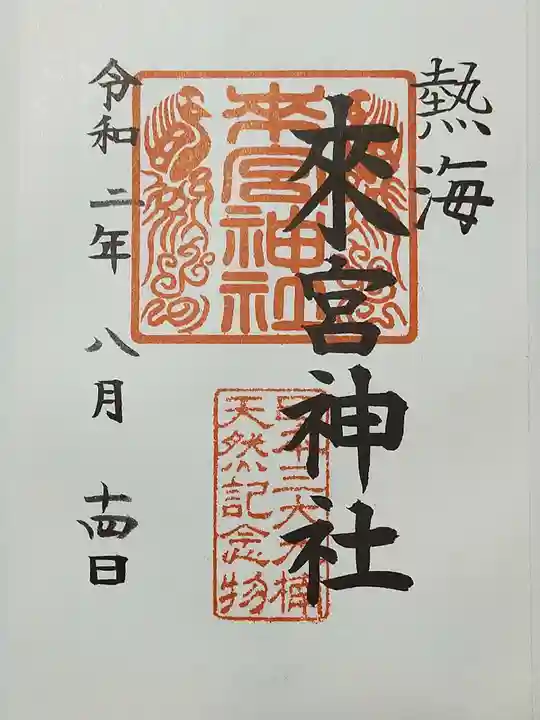 熱海
來宮神社
來宮神社
日本三大大楠
天然記念物
令和二年 八月 十四日